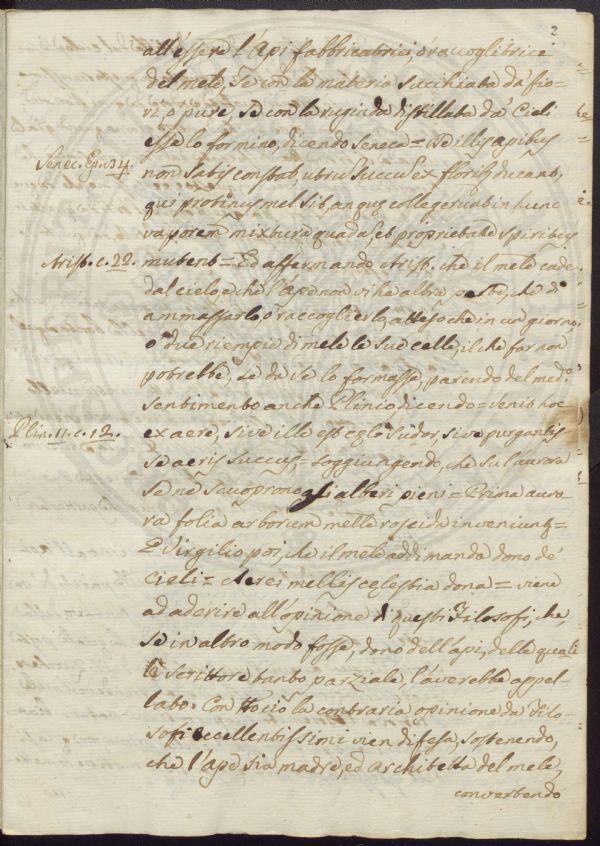 2
all'essere l'Api fabbricatrici, ó raccoglitrici
del mele, se con la materia succhiata da' fio-
ri, o pure, se con la rugiada distillata da' Cieli
esse lo formino, dicendo Seneca = De illis apibus
Senec. Ep.
non satis constat, utrũ succũ ex floribꝫ ducant,
qui protinus mel sit, an quę collegerunt in hunc
vaporem mixtura quadã, et proprietate spiritus
Arist. c. 22.
mutent = Ed affermando Arist. che il mele cade
dal cielo, e che l'ape non vi ha altra parte, che di
ammassarlo, ó raccoglierlo, atteso che in un giorno,
ó due riempie di mele le sue celle, il che far non
potrebbe, se da se lo formasse, parendo del med.º
sentimento anche Plinio dicendo = venit hoc
Plin. 11. c. 12.
ex aere, sive ille est cęli sudor, sive purgantis
se aeris succus = soggiungendo, che su l'aurora
se ne scuoprono gli alberi pieni = Prima auro-
ra folia arborum melle roscida inveniunt =
E Virgilio poi, che il mele addimanda dono de'
cieli = Aerei mellis cęlestia dona = viene
ad aderire all'opinione di questi Filosofi, che,
se in altro modo fosse, dono dell'api, delle quali
è scrittore tanto parziale, l'averebbe appel-
lato. Con tto ciò la contraria opinione da Filo-
sofi eccellentissimi vien difesa, sostenendo,
che l'ape sia madre, ed architetta del mele,
convertendo